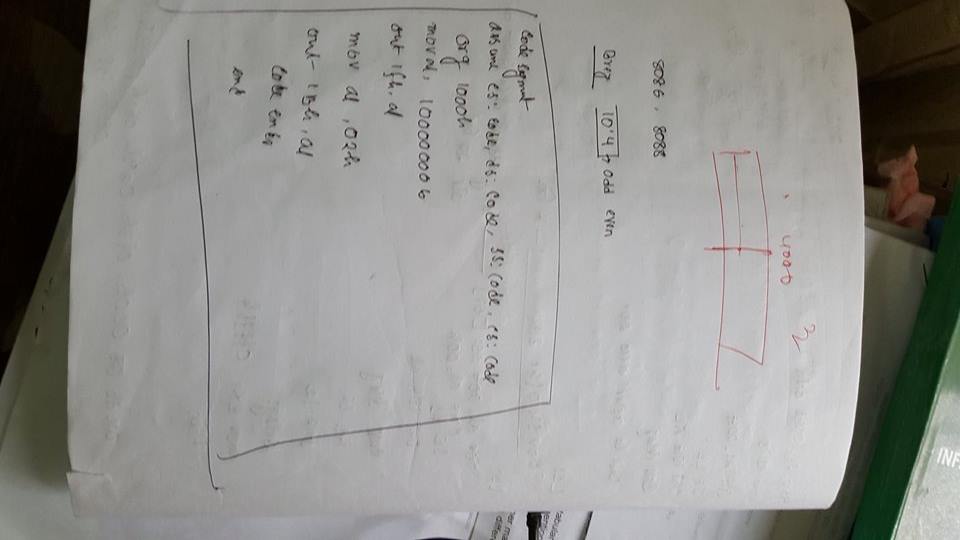 4000
3
8086, 8088
Prog 10.4 odd even
Code segment
assume cs: code, ds: code, ss: code, es: code
org 1000h
mov al, 10000000b
out 1fh, al
mov al, 02h
out 1Bh, al
Code ends
end
INF